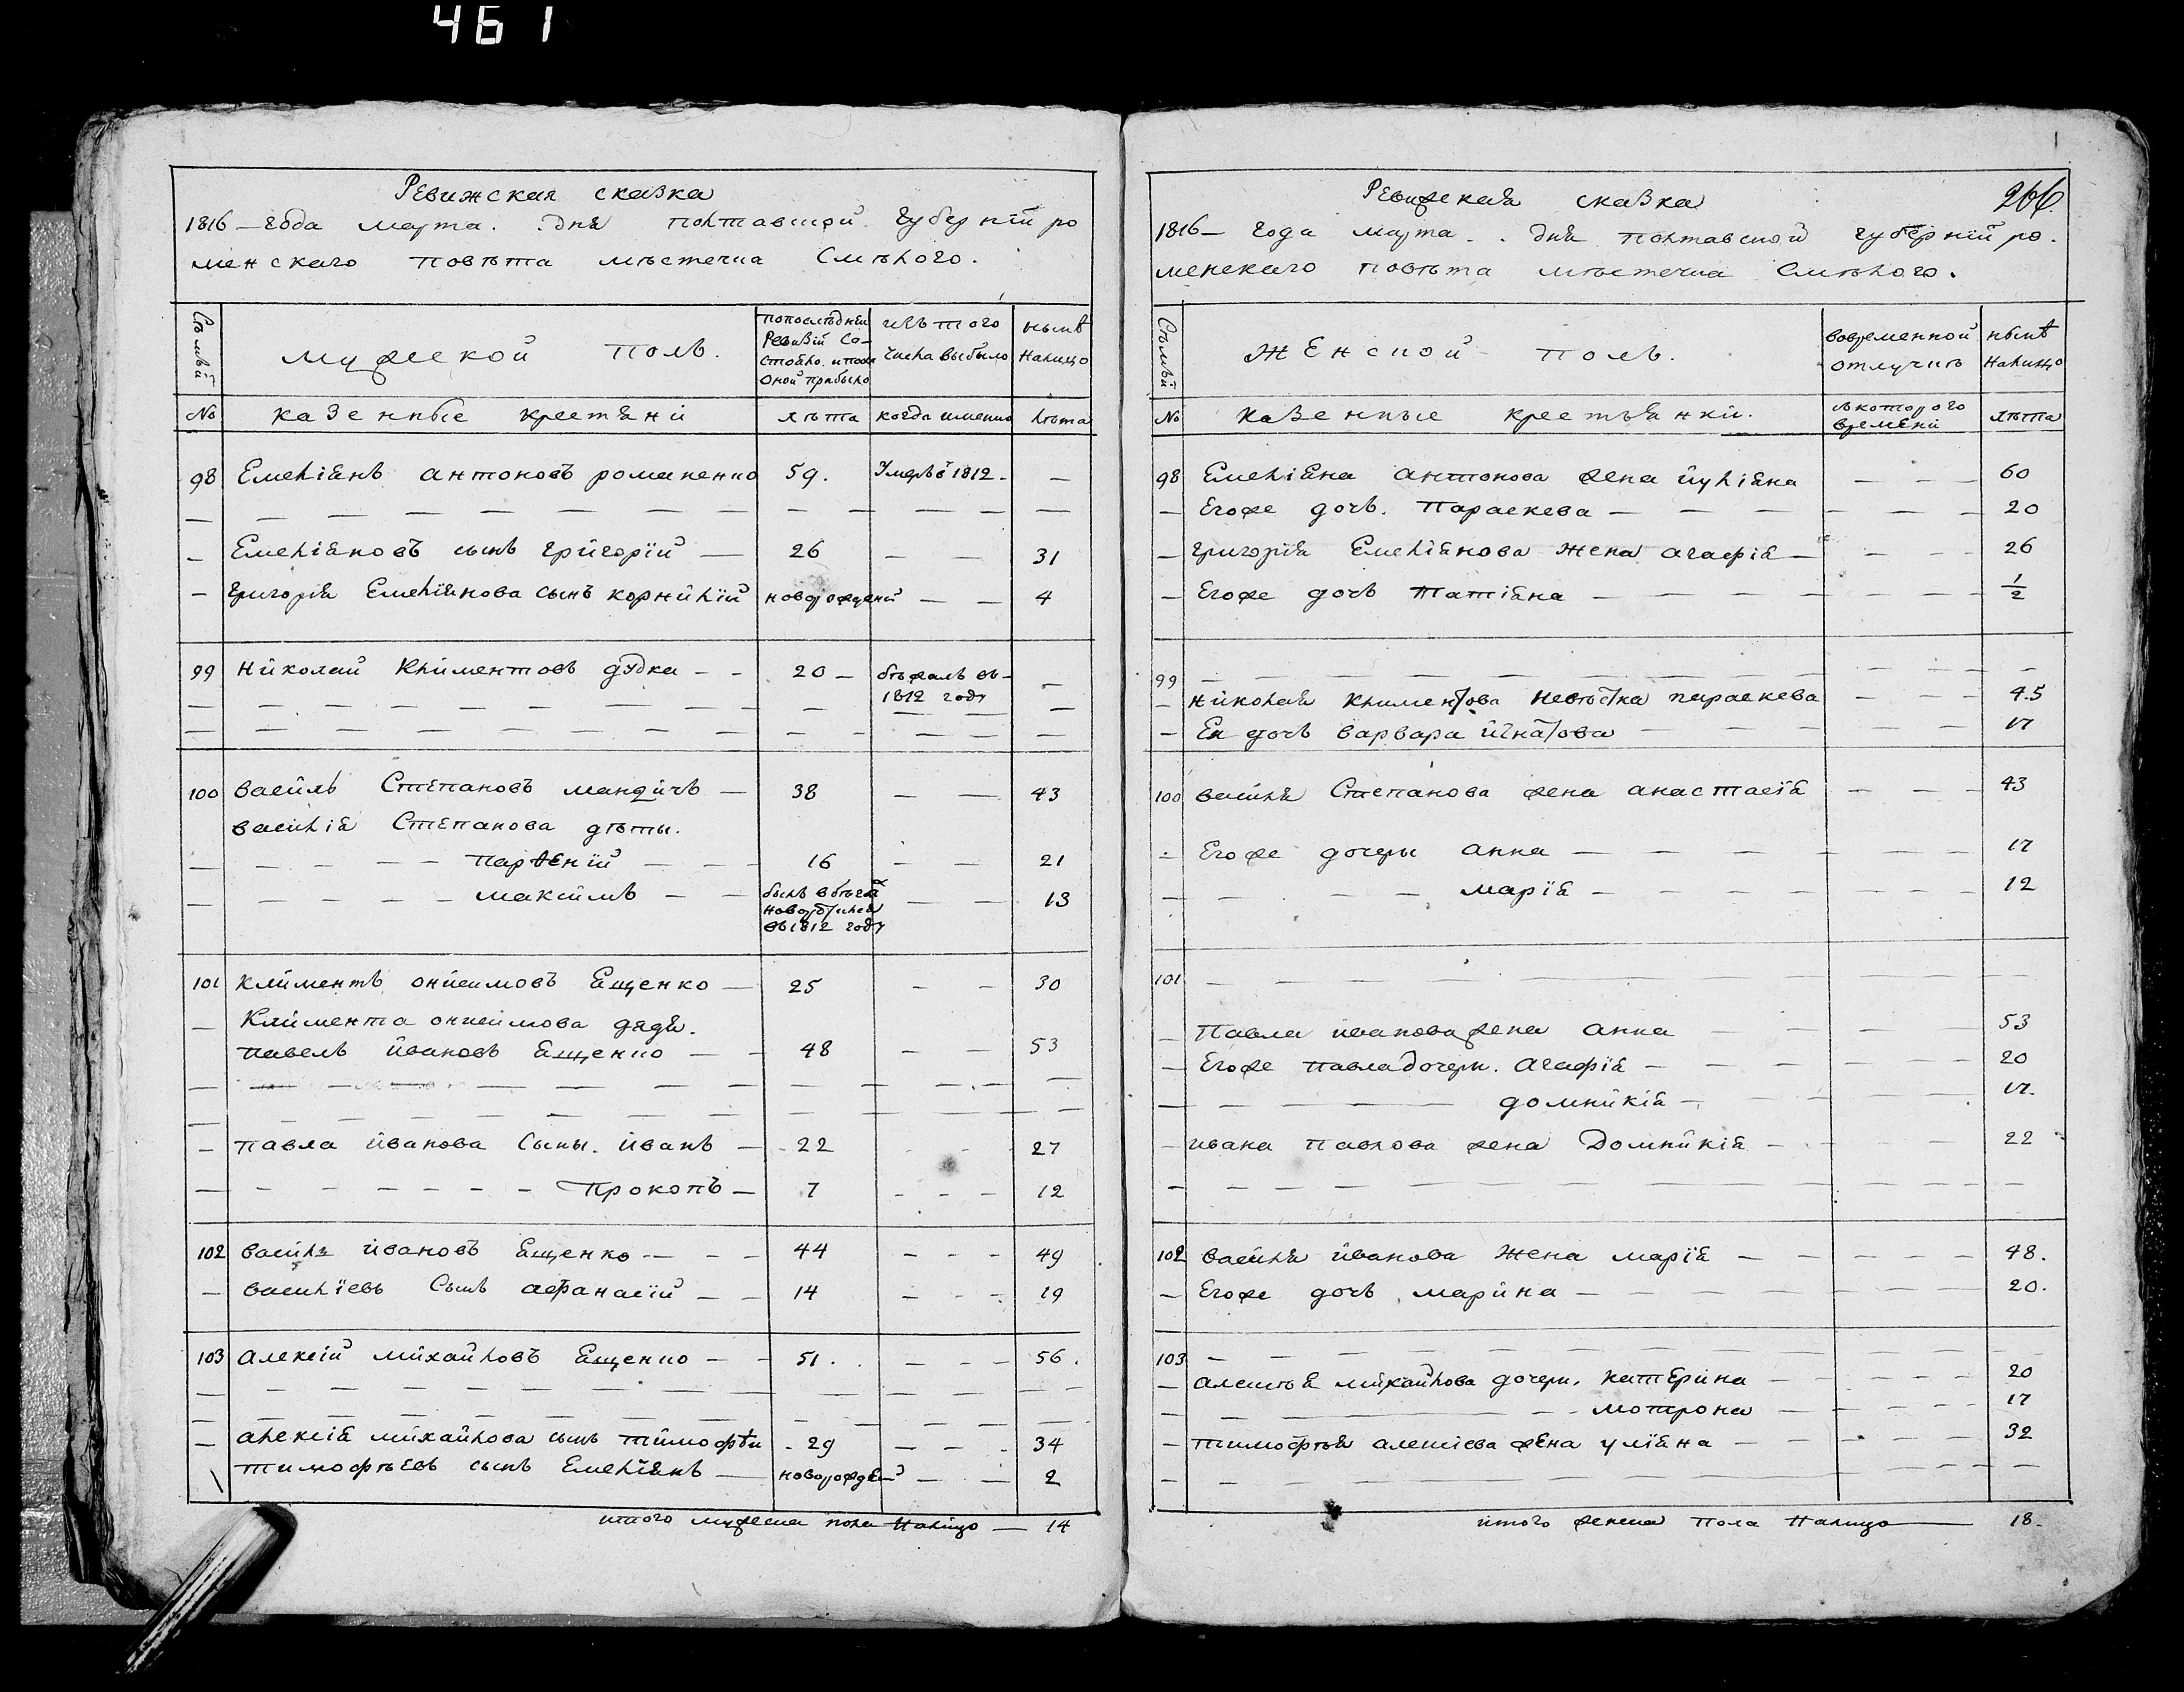 461
Ревижская сказка
1816 — года марта . . дня полтавской губерній ро
менского повѣта мѣстечка Смѣлого.
Сѣмьй
мужской полъ.
попослѣдней Ревизій Состояло. и после Оной прибыло
изъ того Числа выбыло
нынѣ Налицо
№ казенные крестяни лѣта когда имянно лѣта
98 Емеліянъ антоновъ романенко 59. Умеръ в 1812 - —
— Емеліяновъ сынъ григорій — 26 — — 31
— григорія Емеліянова сынъ корнилій новорожденій — — 4
99 николай Климентовъ дудка - - 20 — бѣжалъ въ 1812 году —
100 василь Степановъ мандичъ — 38 — — 43
василія Степанова дѣты.
— — — — — парѳеній — — 16 — — 21
— — — — — максимъ — — былъ в бѣгах въ 1812 году — — 13
101 климентъ онисимовъ Ещенко — 25 — — 30
— Климента онисимова дядя.
павелъ ивановъ Ещенко — — 48 — — 53
— павла иванова Сыны. иванъ — 22 - - 27
— — — — — — — Прокопъ — 7 - - - 12
102 василь ивановъ Ещенко — — - 44 - - - 49
— василіевъ Сынъ афанасій — - 14 - - - 19
103 алексій михайловъ Ещенко — - 51 . . — - — 56 .
— алексія михайлова сынъ тимофѣй - 29 — - - 34
тимофѣевъ сынъ Емеліянъ — новорожден — — 2
итого мужеска пола Налицо — 14
Ревижская сказка 266
1816 — года марта . . дня полтавской губерній ро.
менского повѣта мѣстечка Смѣлого.
Сѣмьй
Женской полъ.
вовременной отлучкѣ
нынѣ Налицо
№ казенные крестьянки. съ которого времени лѣта
98 Емеліяна антонова жена иуліяна — — — 60
— Егоже дочь. Параскева — — — — — — 20
— григорія Емеліянова жена агафія — — — 26
— Егоже дочь татіяна — — — — — — 1/2
99 — — — — — — — — — —
— николая климентова невѣстка параскева — — — 45
— Ея дочь варвара игнатова — — — — — 17
100 василя Степанова жена анастасія — — — 43
— Егоже дочеры анна — — — — — — 17
— — — — марія — — — — — — 12
101 — — — — — — — — — —
— Павла иванова жена анна — — — 53
— Егоже павла дочери. агафія — — — — — 20
— — — домникія — — — — 17.
— ивана павлова жена Домникія — — — 22
102 василя иванова жена марія — — — — — 48.
— Егоже дочь марина — — — — — — 20.
103 — — — — — — — — — —
— алексѣя михайлова дочери. катерина — — — — 20
— — — мотрона — — — — 17
— тимофѣя алексіева жена уліяна — — — — 32
итого женска Пола Налицо — 18.